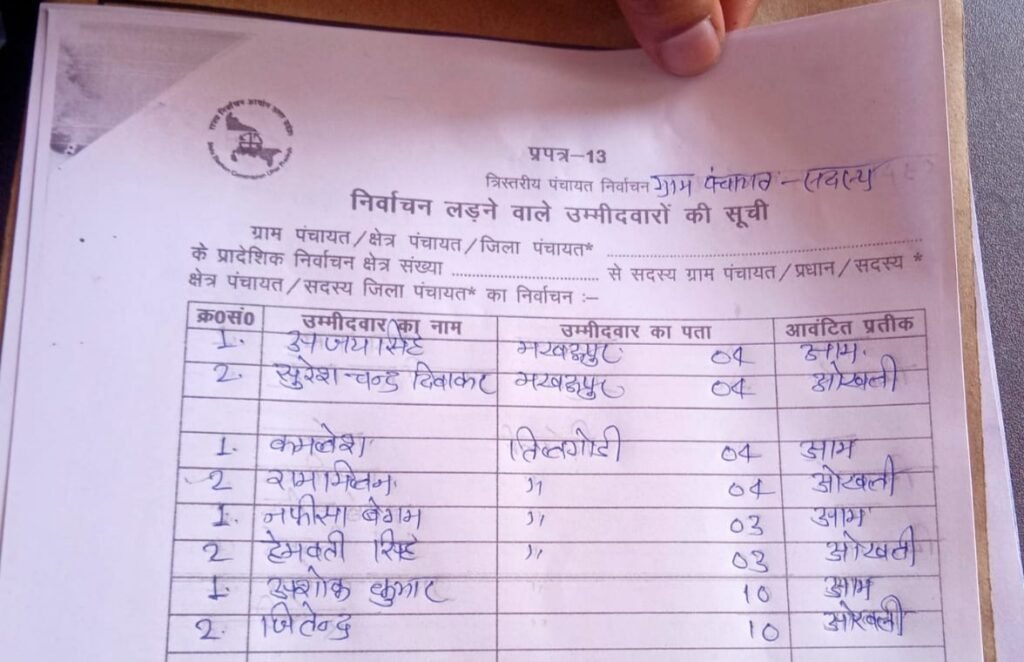 प्रपत्र–13
त्रिस्तरीय पंचायत निर्वाचन ग्राम पंचायत – सदस्य
निर्वाचन लड़ने वाले उम्मीदवारों की सूची
ग्राम पंचायत/क्षेत्र पंचायत/जिला पंचायत* ........................
के प्रादेशिक निर्वाचन क्षेत्र संख्या ........................ से सदस्य ग्राम पंचायत/प्रधान/सदस्य *
क्षेत्र पंचायत/सदस्य जिला पंचायत* का निर्वाचन :–
क्र0सं0 उम्मीदवार का नाम उम्मीदवार का पता आवंटित प्रतीक
1. अजय सिंह 04 आम
2. सुरेश चन्द्र दिवाकर 04 ओखली
1. कमलेश 04 आम
2 राममिलन " 04 ओखली
1. नफीसा बेगम " 03 आम
2 हेमवती सिंह " 03 ओखली
1. अशोक कुमार 10 आम
2. जितेन्द्र 10 ओखली